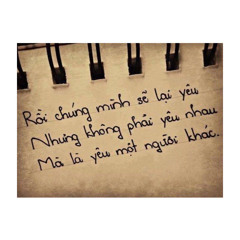 Rồi chúng mình sẽ lại yêu
Nhưng không phải yêu nhau
Mà là yêu một người khác.